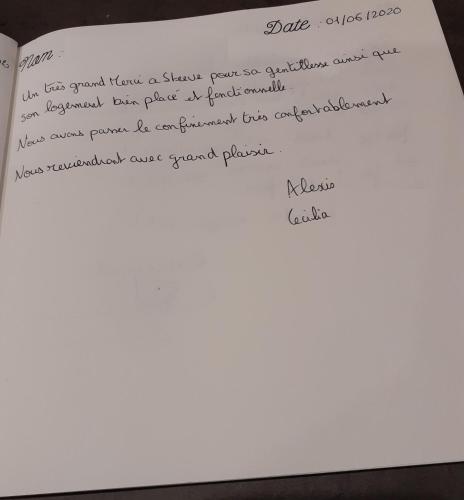 Nom :
Date : 01/06/2020
Un très grand Merci a Steeve pour sa gentillesse ainsi que
son logement bien placé et fonctionnelle.
Nous avons passer le confinement très confortablement
Nous reviendront avec grand plaisir.
Alexis
Cecilia